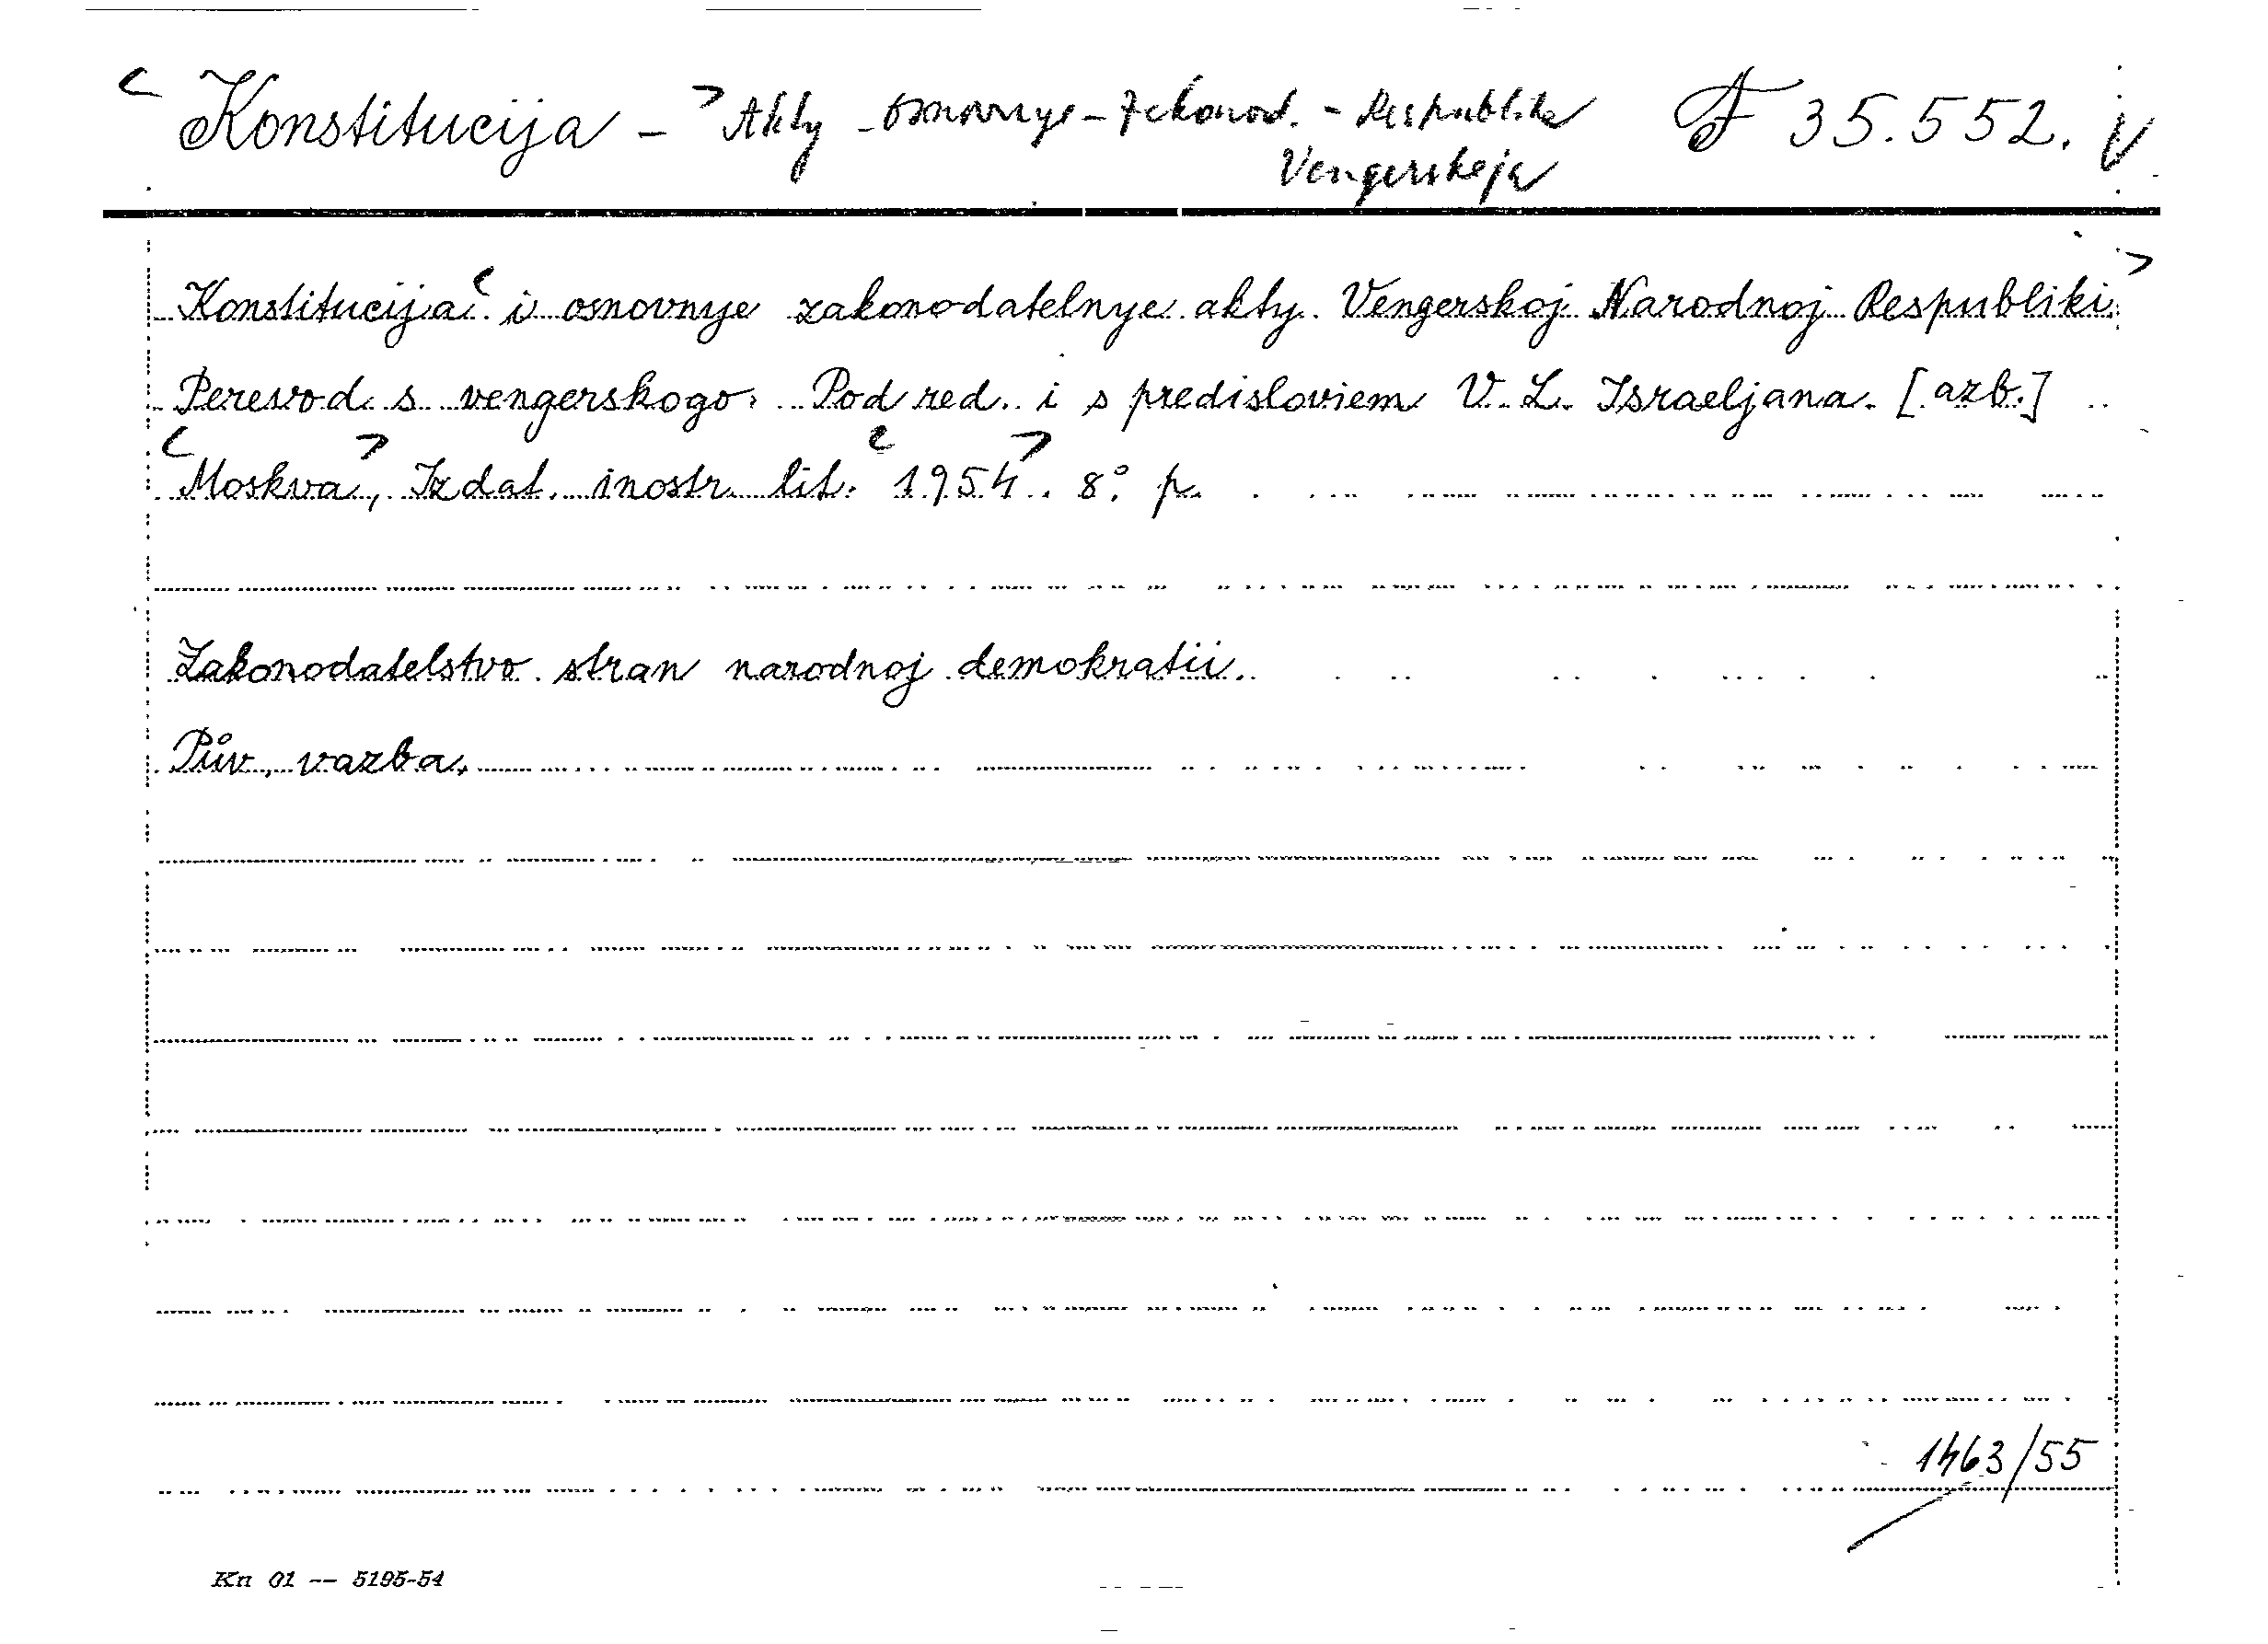 Konstitucija - Akty - osnovnye - zakonod. - Respublika F 35.552. V
Vengerskaja
Konstitucija i osnovnye zakonodatelnye akty Vengerskoj Narodnoj Respubliki.
Perevod s vengerskogo. Pod red. i s predisloviem V. L. Israeljana. [azb.]
Moskva, Izdat. inostr. lit. 1954. 8° p.
Zakonodatelstvo stran narodnoj demokratii.
Pův. vazba.
1463/55
Kn 01 -- 5195-54